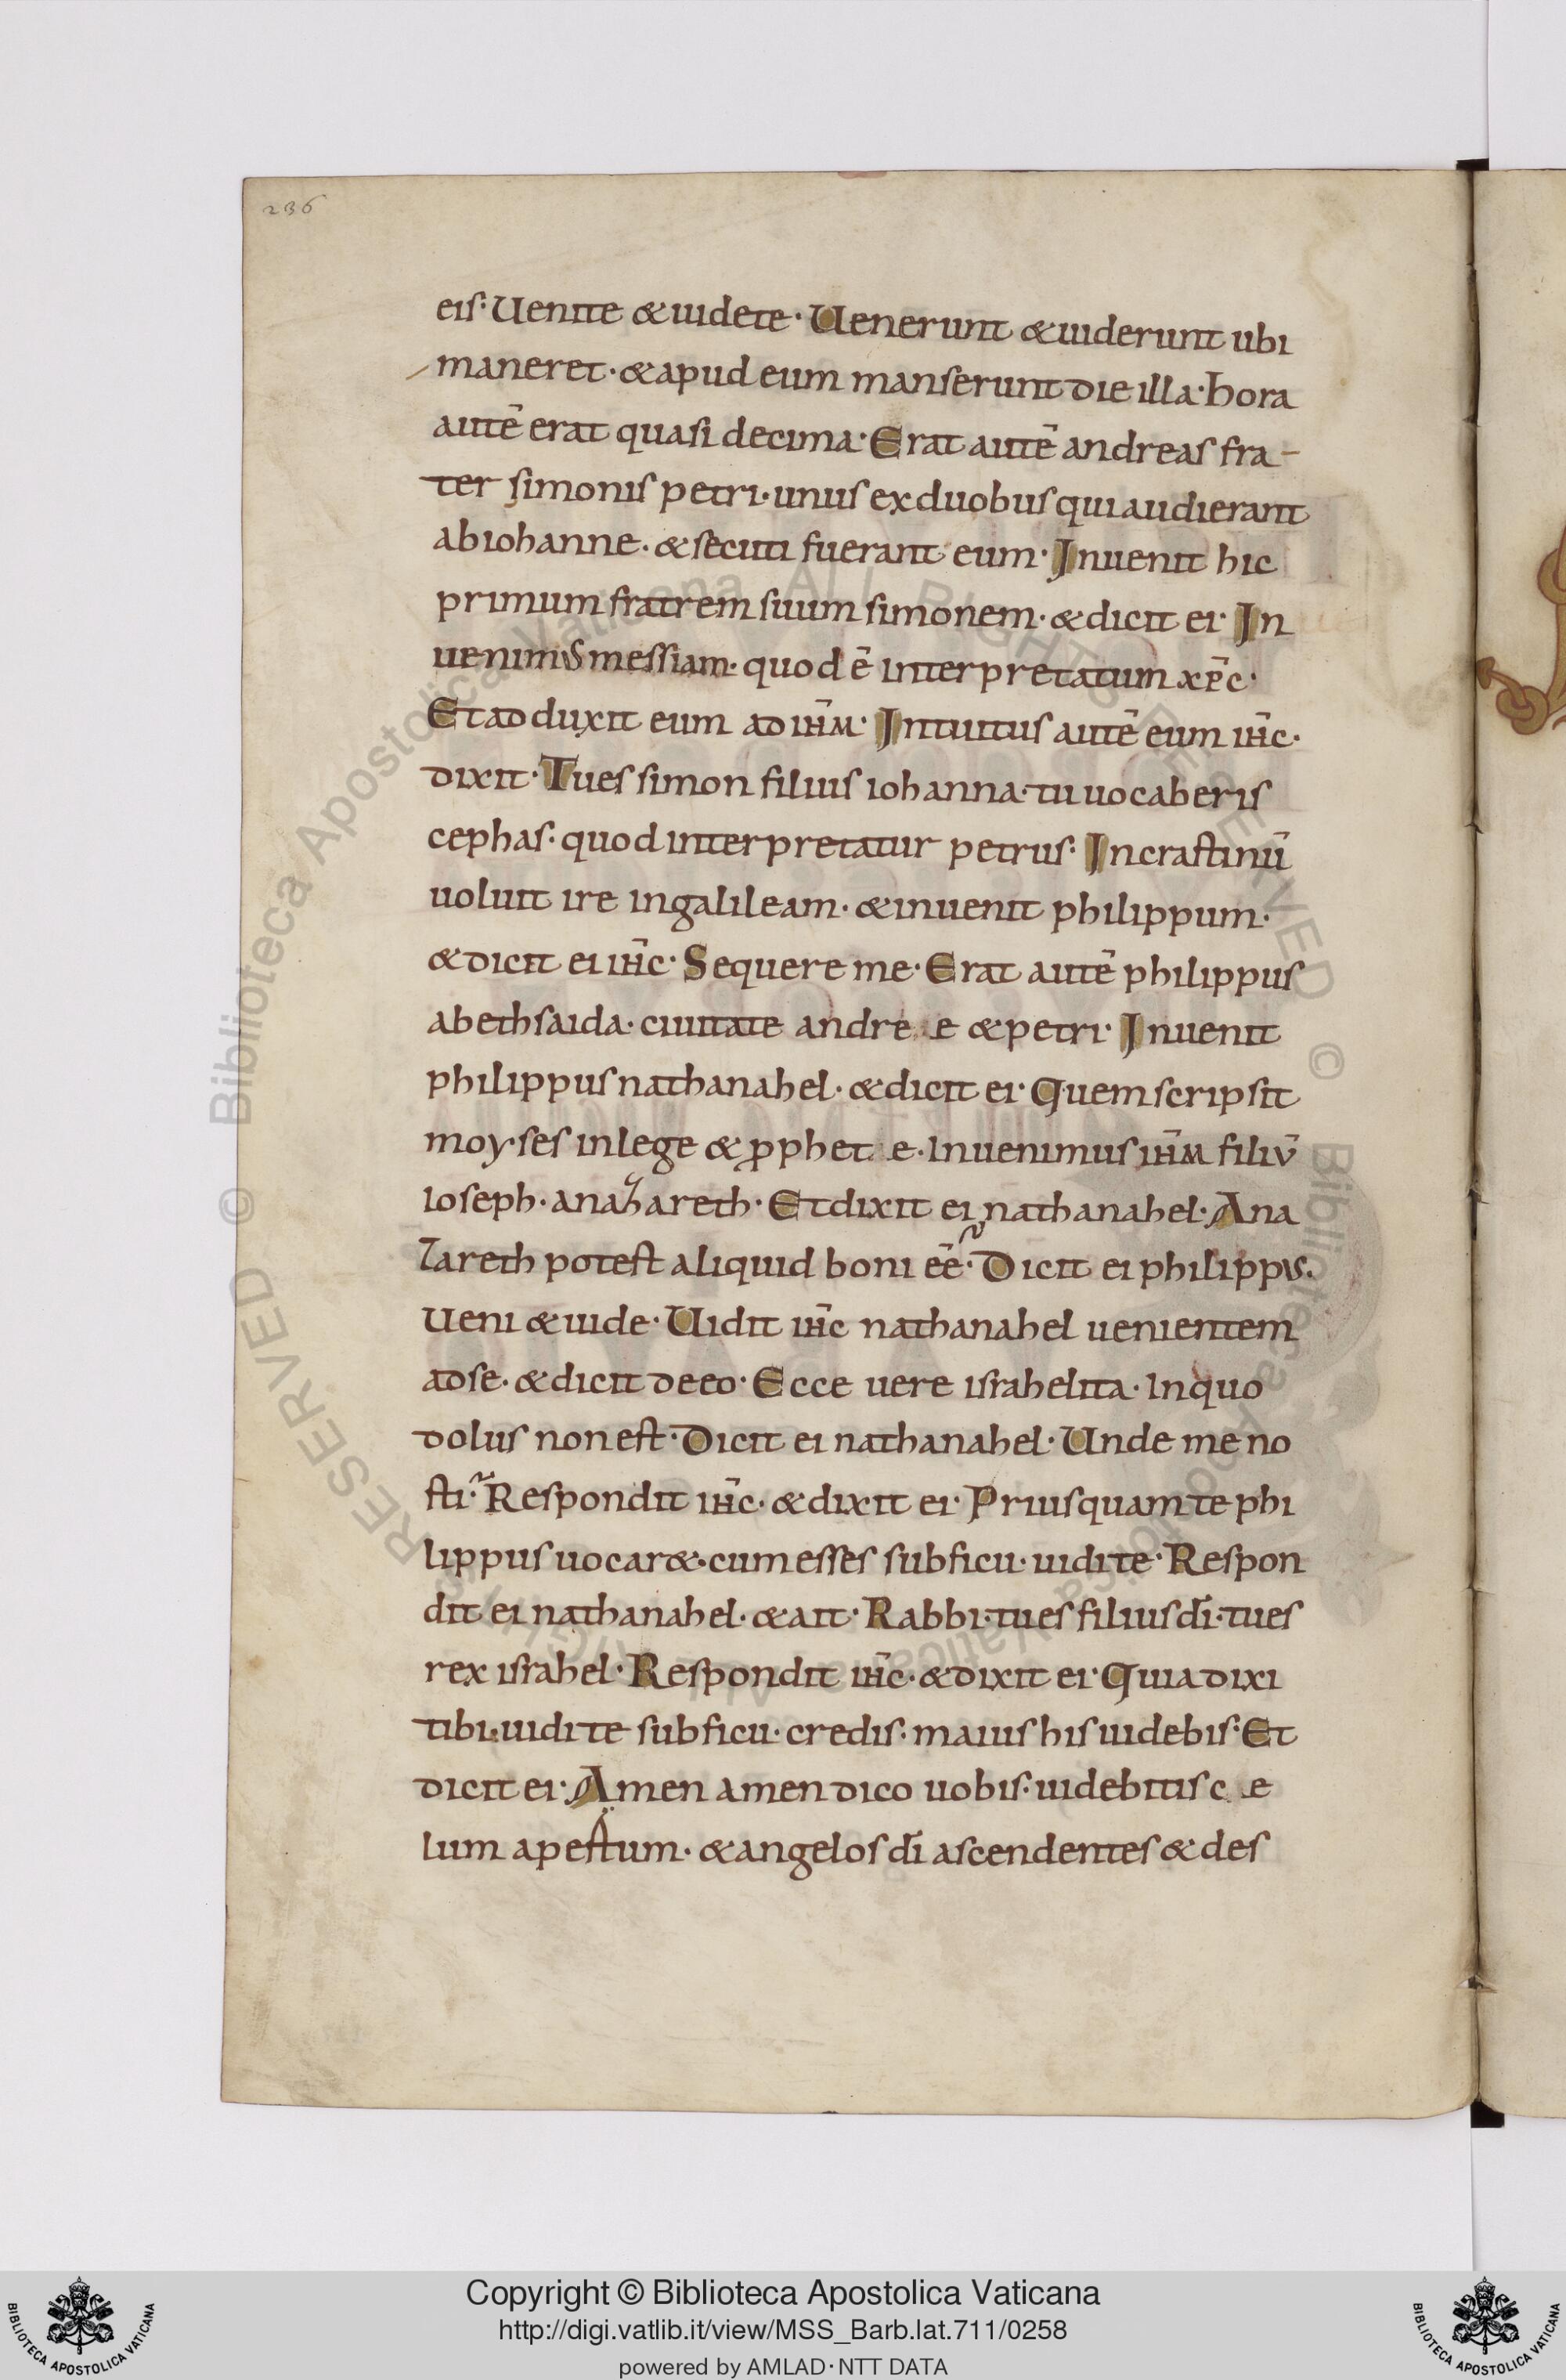 236
eis· Uenite &uidete· Uenerunt &uiderunt ubi
maneret· &apud eum manserunt die illa· hora
autē erat quasi decima· Erat autē andreas fra-
ter simonis petri· unus ex duobus qui audierant
ab iohanne· &secuti fuerant eum· Inuenit hic
primum fratrem suum simonem· &dicit ei· In
uenimus messiam· quod ē interpretatum xp̄c·
Et adduxit eum ad ih̄m· Intuitus autē eum ih̄c·
dixit· Tu es simon filius iohanna· tu uocaberis
cephas· quod interpretatur petrus· In crastinū
uoluit ire in galileam· &inuenit philippum·
&dicit ei ih̄c· Sequere me· Erat autē philippus
a bethsaida· ciuitate andre e &petri· Inuenit
philippus nathanahel· &dicit ei· Quem scripsit
moyses in lege &p̱phet e· Inuenimus ih̄m filiū
ioseph· a nazareth· Et dixit ei nathanahel· A na
zareth potest aliquid boni ēē· Dicit ei philippus·
Ueni &uide· Uidit ih̄c nathanahel uenientem
ad se· &dicit de eo· Ecce uere israhelita· In quo
dolus non est· Dicit ei nathanahel· Unde me no
sti· Respondit ih̄c· &dixit ei· Priusquam te phi
lippus uocar&· cum esses sub ficu· uidi te· Respon
dit ei nathanahel· &ait· Rabbi· tu es filius dī· tu es
rex israhel· Respondit ih̄c· &dixit ei· Quia dixi
tibi· uidi te sub ficu· credis· maius his uidebis· Et
dicit ei· Amen amen dico uobis· uidebitis c e
lum apestum· &angelos dī ascendentes &des
© Biblioteca Apostolica Vaticana ALL RIGHTS RESERVED
Copyright © Biblioteca Apostolica Vaticana
http://digi.vatlib.it/view/MSS_Barb.lat.711/0258
powered by AMLAD·NTT DATA
BIBLIOTECA APOSTOLICA VATICANA
BIBLIOTECA APOSTOLICA VATICANA